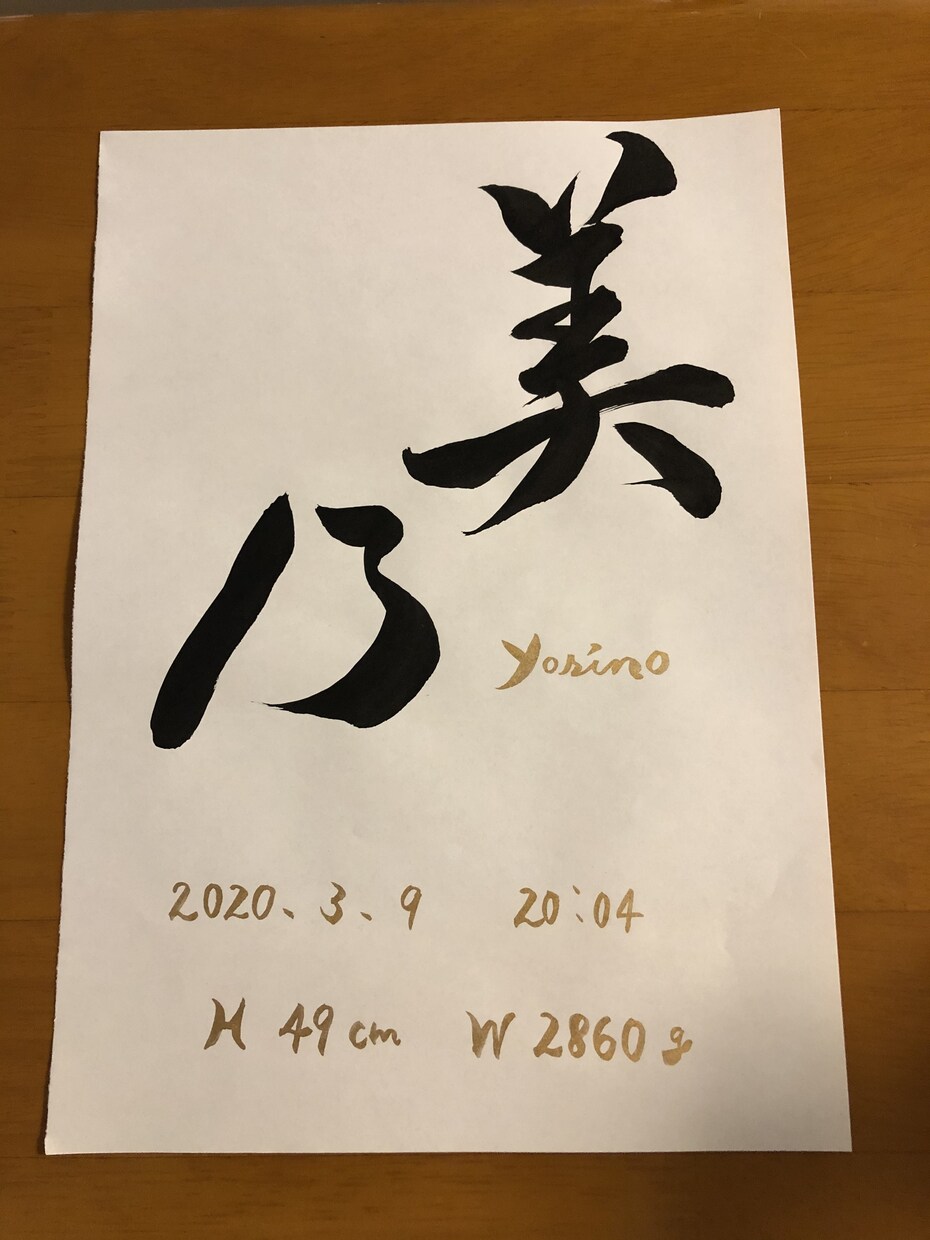 美乃
Yosino
2020、3、9 20:04
H 49cm W 2860g